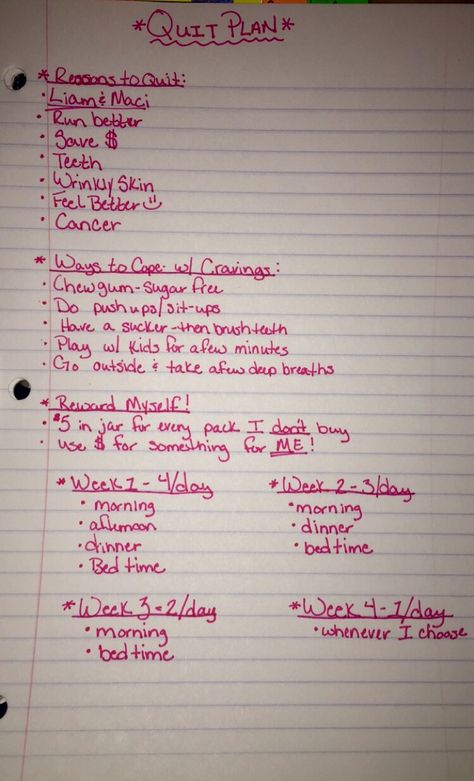 *QUIT PLAN*
* Reasons to Quit:
· Liam & Maci
· Run better
· Save $
· Teeth
· Wrinkly Skin
· Feel Better ☺
· Cancer
* Ways to Cope w/ Cravings:
· Chew gum - sugar free
· Do pushups/sit-ups
· Have a sucker - then brush teeth
· Play w/ kids for a few minutes
· Go outside & take a few deep breaths
* Reward Myself!
· $5 in jar for every pack I don't buy
· use $ for something for ME!
* Week 1 - 4/day
· morning
· afternoon
· dinner
· Bed time
* Week 2 - 3/day
· morning
· dinner
· bedtime
* Week 3 - 2/day
· morning
· bedtime
* Week 4 - 1/day
· whenever I choose